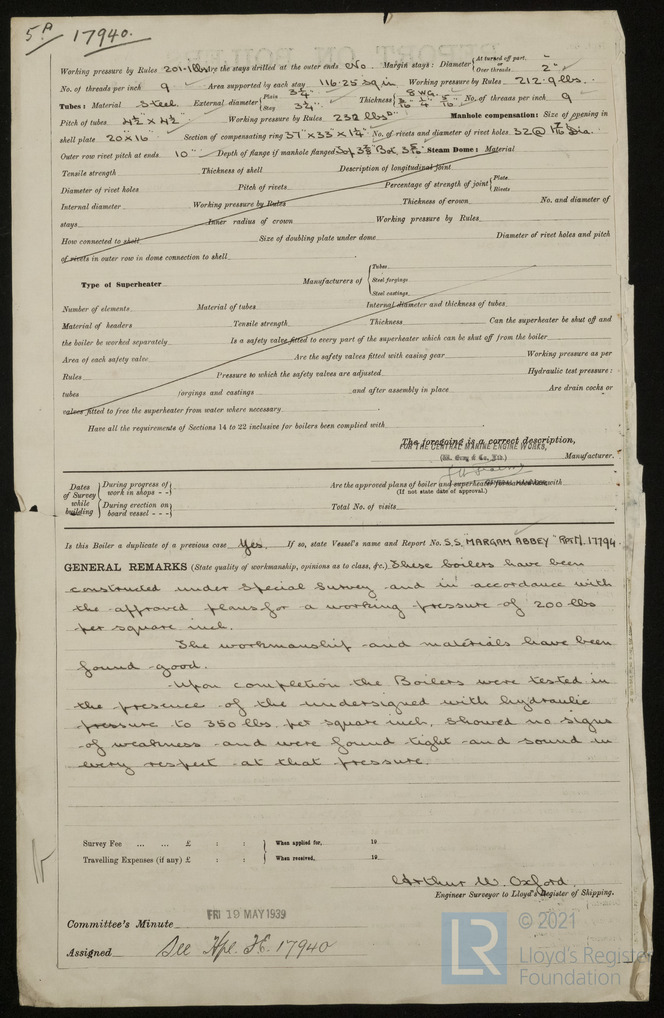 5A 17940.
Working pressure by Rules 201.1 lbs Are the stays drilled at the outer ends No. Margin stays: Diameter { At turned off part, or Over threads 2"
No. of threads per inch 9 Area supported by each stay 116.25 sq in Working pressure by Rules 212.9 lbs.
Tubes: Material Steel External diameter { Plain 3¼" Stay 3¼" Thickness { 8 WG. 3/16" ¼" 5/16" No. of threads per inch 9
Pitch of tubes 4½" x 4½" Working pressure by Rules 232 lbs Manhole compensation: Size of opening in
shell plate 20" x 16" Section of compensating ring 37" x 33" x 1¼" No. of rivets and diameter of rivet holes 32 @ Dia.
Outer row rivet pitch at ends 10" Depth of flange if manhole flanged Steam Dome: Material
Tensile strength Thickness of shell Description of longitudinal joint
Diameter of rivet holes Pitch of rivets Percentage of strength of joint { Plate Rivets
Internal diameter Working pressure by Rules Thickness of crown No. and diameter of
stays Inner radius of crown Working pressure by Rules
How connected to shell Size of doubling plate under dome Diameter of rivet holes and pitch
of rivets in outer row in dome connection to shell
Type of Superheater Manufacturers of { Tubes Steel forgings Steel castings
Number of elements Material of tubes Internal diameter and thickness of tubes
Material of headers Tensile strength Thickness Can the superheater be shut off and
the boiler be worked separately Is a safety valve fitted to every part of the superheater which can be shut off from the boiler
Area of each safety valve Are the safety valves fitted with easing gear Working pressure as per
Rules Pressure to which the safety valves are adjusted Hydraulic test pressure:
tubes forgings and castings and after assembly in place Are drain cocks or
valves fitted to free the superheater from water where necessary
Have all the requirements of Sections 14 to 22 inclusive for boilers been complied with
The foregoing is a correct description,
FOR THE CENTRAL MARINE ENGINE WORKS,
(Wm. Gray & Co. Ltd.) Manufacturer.
Dates of Survey while building { During progress of work in shops - - } Are the approved plans of boiler and superheater forwarded herewith (If not state date of approval.)
{ During erection on board vessel - - - } Total No. of visits
Is this Boiler a duplicate of a previous case Yes. If so, state Vessel's name and Report No. S.S. "MARGAM ABBEY" Rpt No. 17794
GENERAL REMARKS (State quality of workmanship, opinions as to class, &c.) These boilers have been
constructed under special survey and in accordance with
the approved plans for a working pressure of 200 lbs
per square inch.
The workmanship and materials have been
found good.
Upon completion the Boilers were tested in
the presence of the undersigned with hydraulic
pressure to 350 lbs. per square inch, showed no signs
of weakness and were found tight and sound in
every respect at that pressure.
Survey Fee ... ... £ : : When applied for, 19
Travelling Expenses (if any) £ : : When received, 19
Arthur W. Oxford.
Engineer Surveyor to Lloyd's Register of Shipping.
Committee's Minute FRI 19 MAY 1939
Assigned See Hpl. J.E. 17940
LR © 2021
Lloyd's Register
Foundation